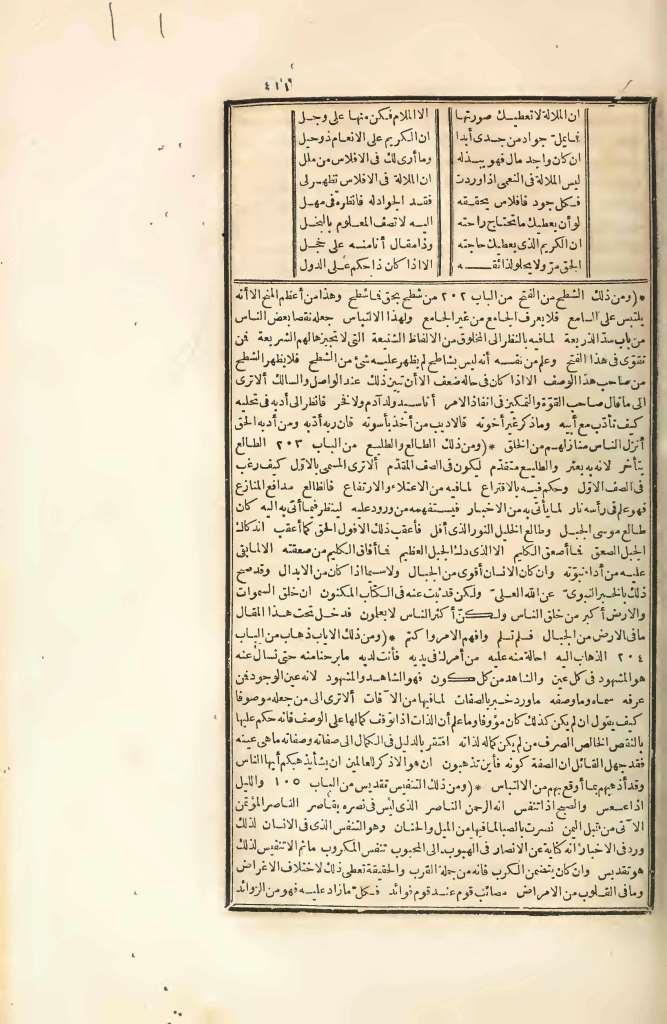 ٤١٤
ان الملالة لا تعطيك صورتها الا الملام فكن منها على وجل
فما يملّ جواد من جدى أبدا ان الكريم على الانعام ذو حيل
ان كان واجد مال فهو يبذله وما أرى لك فى الافلاس من ملل
ليس الملالة فى النعمى اذا وردت ان الملالة فى الافلاس تظهر لى
فكل جود فافلاس يحققه فقد الجواد له فانظره فى مهل
لو أن يعطيك ما تحتاج راحته اليه لا تصف المعلوم بالبخل
ان الكريم الذى يعطيك حاجته وذا مقال أنا منه على خجل
الحق مرّ ولا يحلو لذائقه الا اذا كان ذا حكم على الدول
*(ومن ذلك الشطح من الفتح من الباب ٢٠٢ من شطح بحق فما شطح وهذا من أعظم المنح الا أنه
يلتبس على السامع فلا يعرف الجامع من غير الجامع ولهذا الالتباس جعله نقصا بعض الناس
من باب سدّ الذريعة لما فيه بالنظر الى المخلوق من الالفاظ الشنيعة التى لا تجيزها لهم الشريعة فمن
تقوّى فى هذا الفتح وعلم من نفسه أنه ليس بشاطح لم يظهر عليه شئ من الشطح فلا يظهر الشطح
من صاحب هذا الوصف الا اذا كان فى حاله ضعف الا أن تبين ذلك عند الواصل والسالك ألا ترى
الى ما قال صاحب القوّة والتمكين فى انفاذ الامر أنا سيد ولد آدم ولا فخر فانظر الى أدبه فى تحليه
كيف تأدّب مع أبيه وما ذكر غير أخوته فالاديب من أخذ بأسوته فان ربه أدّبه ومن أدبه الحق
أنزل الناس منازلهم من الخلق *(ومن ذلك الطالع والطليع من الباب ٢٠٣ الطالع
يتأخر لانه به يعثر والطليع متقدّم ليكون فى الصف المقدّم ألا ترى المسمى بالاوّل كيف رغب
فى الصف الاوّل وحكم فيه بالاقتراع لما فيه من الاعتلاء والارتفاع فالطالع مدافع المنازع
فهو علم فى رأسه نار لما يأتى به من الاخبار فيستفهمه من ورود عليه لينظر فيما أتى به اليه كان
طالع موسى الجبل وطالع الخليل النور الذى أفل فأعقب ذلك الافول الحق كما أعقب اندكاك
الجبل الصعق فما أصعق الكليم الا الذى دك الجبل العظيم فما أفاق الكليم من صعقته الا لما بقى
عليه من أداء نبوّته وان كان الانسان أقوى من الجبال ولا سيما اذا كان من الابدال وقد صح
ذلك بالخبر النبوىّ عن الله العلىّ ولكن قد ثبت عنه فى الكتاب المكنون ان خلق السموات
والارض أكبر من خلق الناس ولكنّ أكثر الناس لا يعلمون فدخل تحت هذا المقال
ما فى الارض من الجبال فسلم تسلم وافهم الامر واكتم *(ومن ذلك الاياب ذهاب من الباب
٢٠٤ الذهاب اليه احالة منه عليه من أمر لله فى يديه فأنت لديه ما برحنا منه حتى نسأل عنه
هو المشهود فى كل عين والشاهد من كل كون فهو الشاهد والمشهود لانه عين الوجود فمن
عرفه سماه وما وصفه ما ورد خبر بالصفات لما فيها من الآفات ألا ترى الى من جعله موصوفا
كيف يقول ان لم يكن كذلك كان مؤوفا وما علم أن الذات اذا توقف كمالها على الوصف فانه حكم عليها
بالنقص الخالص الصرف من لم يكن كماله لذاته افتقر بالدليل فى الكمال الى صفاته وصفاته ما هى عينه
فقد جهل القائل ان الصفة كونه فأين تذهبون ان هو الا ذكر للعالمين ان يشأ يذهبكم أيها الناس
وقد أذهبهم بما أوقع بهم من الالتباس *(ومن ذلك التنفيس تقديس من الباب ١٠٥ والليل
اذا عسعس والصبح اذا تنفس انه الرحمن الناصر الذى ليس فى نصره بقاصر الناصر المؤتمن
الآتى من قبل اليمن نصرت بالصبا لما فيها من الميل والحنان وهو التنفس الذى فى الانسان لذلك
ورد فى الاخبار انه كناية عن الانصار فى الهبوب الى المحبوب تنفس المكروب ما ثم الا تنفيس لذلك
هو تقديس وان كان يتضمن الكرب فانه من جملة القرب والحقيقة تعطى ذلك لاختلاف الاغراض
وما فى القلوب من الامراض مصائب قوم عند قوم فوائد فكل ما زاد عليه فهو من الزوائد